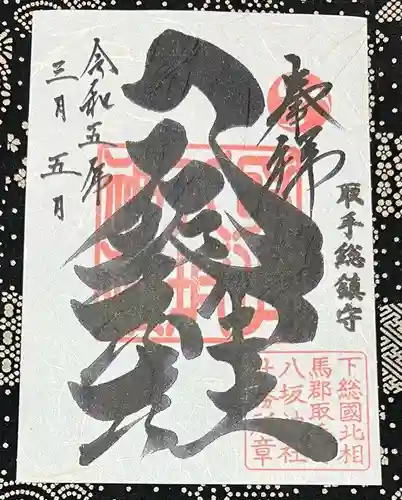 奉拝
取手総鎮守
八坂神社
令和五年
三月五日
下総國北相
馬郡取
八坂神社